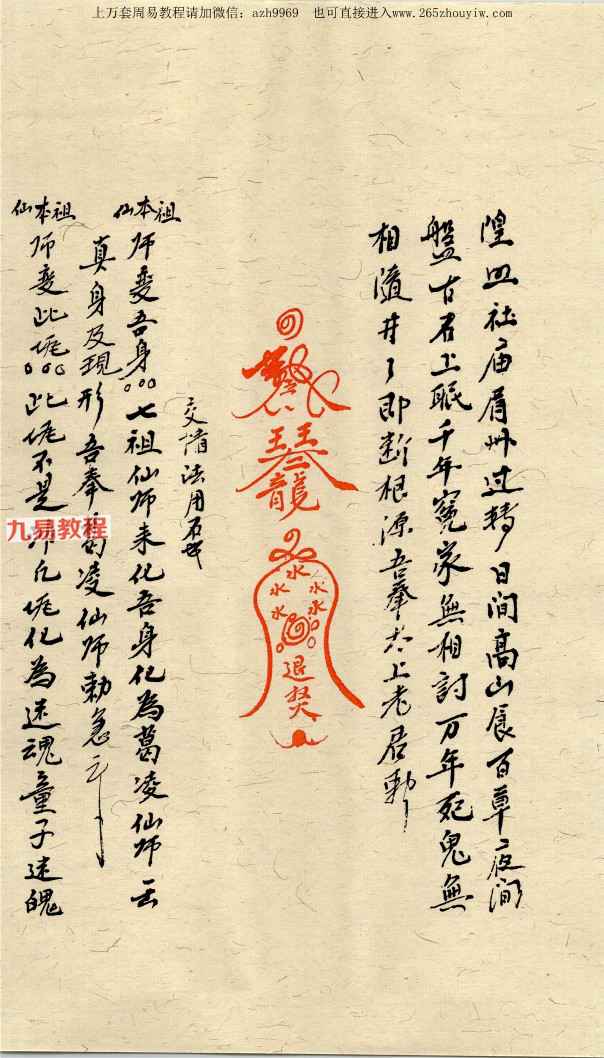 上万套周易教程请加微信：azh9969　也可直接进入www.265zhouyiw.com
隍 社庙眉州过转日间高山展百草夜间
盤古君上眠千年寃家無相討万年死鬼無
相隨井了即断根源吾奉太上老君勅
龍
水
水 水
水 水
水 水
退
法用石
祖本仙师变吾身七祖仙师来化吾身化為葛凌仙师云
真身及現形吾奉葛凌仙师勅急
祖本仙师变此 此 不是 凡 化為迷魂童子迷魄
九易教程